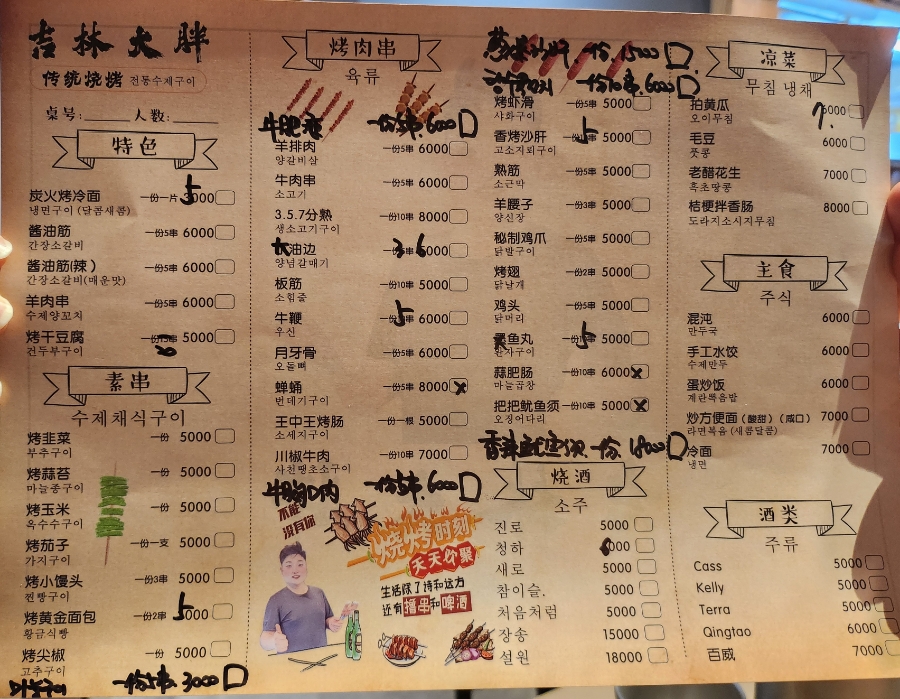 吉林大胖
传统烧烤 전통수제구이
桌号: 人数:
特色
炭火烤冷面 一份一片 5000
냉면구이 (달콤새콤)
酱油筋 一份5串 6000
간장소갈비
酱油筋(辣) 一份5串 6000
간장소갈비(매운맛)
羊肉串 一份5串 6000
수제양꼬치
烤干豆腐 5000
건두부구이
素串
수제채식구이
烤韭菜 一份 5000
부추구이
烤蒜苔 一份 5000
마늘종구이
烤玉米 一份 5000
옥수수구이
烤茄子 一份一支 5000
가지구이
烤小馒头 一份3串 5000
찐빵구이
烤黄金面包 一份2串 5000
황금식빵
烤尖椒 一份 5000
고추구이
一份5串 3000
烤肉串
육류
一份5串 6000
羊排肉 一份5串 6000
양갈비살
牛肉串 一份5串 6000
소고기
3.5.7分熟 一份10串 8000
생소고기구이
油边 6000
양념갈매기
板筋 一份10串 5000
소힘줄
牛鞭 6000
우신
月牙骨 一份5串 6000
오돌뼈
蝉蛹 一份5串 8000
번데기구이
王中王烤肠 一份一根 5000
소세지구이
川椒牛肉 一份10串 7000
사천땡초소구이
牛胸口肉 一份5串 6000
不能
没有你
烧烤时刻
天天分聚
生活除了诗和远方
还有撸串和啤酒
一份 15000
一份10串 6000
烤虾滑 一份5串 5000
샤화구이
香烤沙肝 5000
고소지뢰구이
熟筋 一份5串 5000
소근막
羊腰子 一份3串 5000
양신장
秘制鸡爪 一份5串 5000
닭발구이
烤翅 一份2串 5000
닭날개
鸡头 一份5串 5000
닭머리
鱼丸 5000
완자구이
蒜肥肠 一份10串 6000
마늘곱창
把把鱿鱼须 一份10串 5000
오징어다리
香辣鱿鱼须 一份 18000
烧酒
소주
진로 5000
청하 6000
새로 5000
참이슬. 5000
처음처럼 5000
장송 15000
설원 18000
凉菜
무침 냉채
拍黄瓜 7000
오이무침
毛豆 6000
풋콩
老醋花生 7000
흑초땅콩
桔梗拌香肠 8000
도라지소시지무침
主食
주식
混沌 6000
만두국
手工水饺 6000
수제만두
蛋炒饭 6000
계란볶음밥
炒方便面(酸甜)(咸口) 7000
라면볶음 (새콤달콤)
冷面 7000
냉면
酒类
주류
Cass 5000
Kelly 5000
Terra 5000
Qingtao 6000
百威 7000